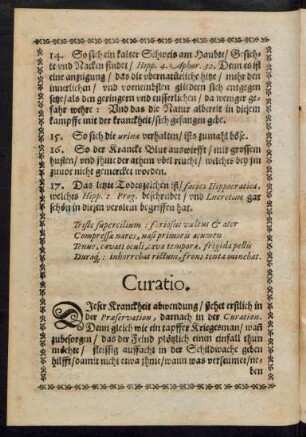 14. So sich ein kalter Schweis am Haubte/ Gesich-
te vnd Nacken findet/ Hipp. 4. Aphor. 32. Dann es ist
eine anzeigung/ das die vbernatürliche hitze/ mehr den
innerlichen/ vnd vornembsten gliedern sich entgegen
setze/ als den geringen vnd eusserlichen/ da weniger ge-
fahr wehre: Vnd das die Natur albereit in diesem
kampffe mit der kranckheit/ sich gefangen gebe.
15. So sich die urine verhalten/ ists zumahl böse.
16. So der Krancke Blut auswirfft/ mit grossem
husten/ vnd ihme der athem vbel reucht/ welches bey jm
zuvor nicht gemercket worden.
17. Das letzte Todeszeichen ist/ facies Hippocratica,
welches Hipp. 1. Prog. beschreibet/ vnd Lucretius gar
schön in diesen versen begriffen hat.
Triste supercilium: furiosus vultus & ater
Compressa nares, nasi primoris acumen
Tenue, cavati oculi, cava tempora, frigida pellis
Duraq́;: inhorrebat rictum, frons tenta minebat.
Curatio.
DIeser Kranckheit abwendung/ stehet erstlich in
der Præservation, darnach in der Curation.
Denn gleich wie ein tapffer Kriegesman/ wañ
zubesorgen/ das der Feind plötzlich einen einfall thun
möchte/ fleissig auffacht in der Schildwache geben
hilfft/ damit nicht etwa ihme/ wann was verseumet/ ne-
ben